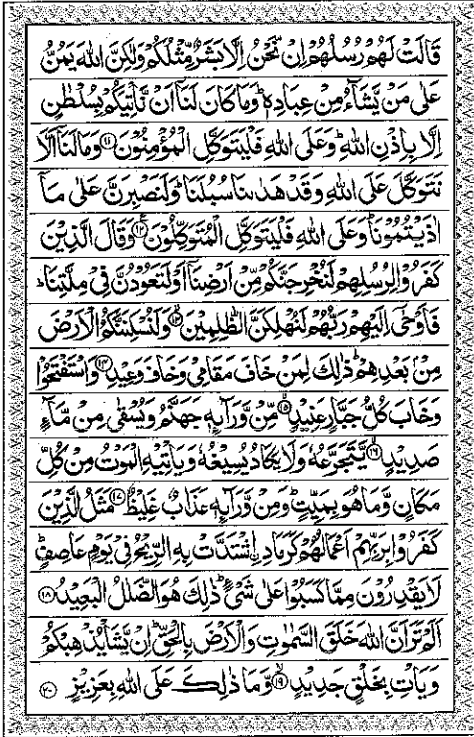 قَالَتْ لَهُمْ رُسُلُهُمْ اِنْ نَّحْنُ اِلَّا بَشَرٌ مِّثْلُكُمْ وَلٰكِنَّ اللّٰهَ يَمُنُّ
عَلٰى مَنْ يَّشَآءُ مِنْ عِبَادِهٖ ؕ وَمَا كَانَ لَنَاۤ اَنْ نَّاْتِيَكُمْ بِسُلْطٰنٍ
اِلَّا بِاِذْنِ اللّٰهِ ؕ وَعَلَى اللّٰهِ فَلْيَتَوَكَّلِ الْمُؤْمِنُوْنَ ﴿۱۱﴾ وَمَا لَنَاۤ اَلَّا
نَتَوَكَّلَ عَلَى اللّٰهِ وَقَدْ هَدٰىنَا سُبُلَنَا ؕ وَلَنَصْبِرَنَّ عَلٰى مَاۤ
اٰذَيْتُمُوْنَا ؕ وَعَلَى اللّٰهِ فَلْيَتَوَكَّلِ الْمُتَوَكِّلُوْنَ ﴿۱۲﴾ وَقَالَ الَّذِيْنَ
كَفَرُوْا لِرُسُلِهِمْ لَنُخْرِجَنَّكُمْ مِّنْ اَرْضِنَاۤ اَوْ لَتَعُوْدُنَّ فِيْ مِلَّتِنَا ؕ
فَاَوْحٰۤى اِلَيْهِمْ رَبُّهُمْ لَنُهْلِكَنَّ الظّٰلِمِيْنَ ﴿۱۳﴾ وَلَنُسْكِنَنَّكُمُ الْاَرْضَ
مِنْ بَعْدِهِمْ ؕ ذٰلِكَ لِمَنْ خَافَ مَقَامِيْ وَخَافَ وَعِيْدِ ﴿۱۴﴾ وَاسْتَفْتَحُوْا
وَخَابَ كُلُّ جَبَّارٍ عَنِيْدٍ ﴿۱۵﴾ مِّنْ وَّرَآئِهٖ جَهَنَّمُ وَيُسْقٰى مِنْ مَّآءٍ
صَدِيْدٍ ﴿۱۶﴾ يَّتَجَرَّعُهٗ وَلَا يَكَادُ يُسِيْغُهٗ وَيَاْتِيْهِ الْمَوْتُ مِنْ كُلِّ
مَكَانٍ وَّمَا هُوَ بِمَيِّتٍ ؕ وَمِنْ وَّرَآئِهٖ عَذَابٌ غَلِيْظٌ ﴿۱۷﴾ مَثَلُ الَّذِيْنَ
كَفَرُوْا بِرَبِّهِمْ اَعْمَالُهُمْ كَرَمَادِ ِۨاشْتَدَّتْ بِهِ الرِّيْحُ فِيْ يَوْمٍ عَاصِفٍ ؕ
لَا يَقْدِرُوْنَ مِمَّا كَسَبُوْا عَلٰى شَيْءٍ ؕ ذٰلِكَ هُوَ الضَّلٰلُ الْبَعِيْدُ ﴿۱۸﴾
اَلَمْ تَرَ اَنَّ اللّٰهَ خَلَقَ السَّمٰوٰتِ وَالْاَرْضَ بِالْحَقِّ ؕ اِنْ يَّشَاْ يُذْهِبْكُمْ
وَيَاْتِ بِخَلْقٍ جَدِيْدٍ ﴿۱۹﴾ وَّمَا ذٰلِكَ عَلَى اللّٰهِ بِعَزِيْزٍ ﴿۲۰﴾